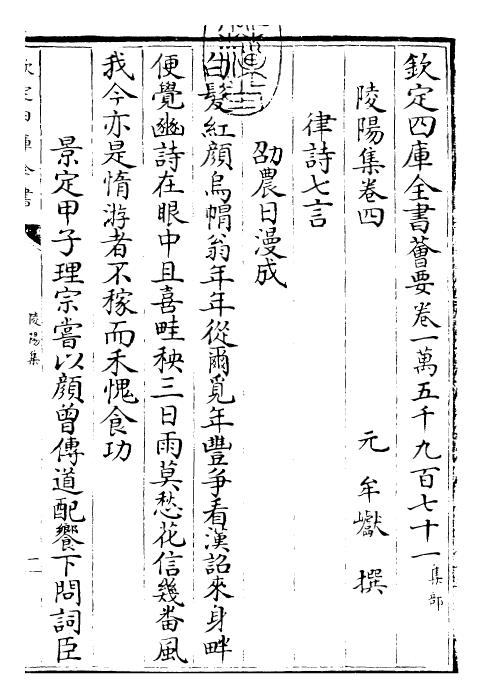 欽定四庫全書薈要卷一萬五千九百七十一 集部
陵陽集卷四 元 牟巘 撰
律詩七言
劭農日漫成
白髮紅顔烏帽翁年年從爾覓年豐爭看漢詔來身畔
便覺豳詩在眼中且喜畦秧三日雨莫愁花信幾番風
我今亦是惰游者不稼而禾愧食功
景定甲子理宗嘗以顔曾傳道配饗下問詞臣
欽定四庫全書
陵陽集
一